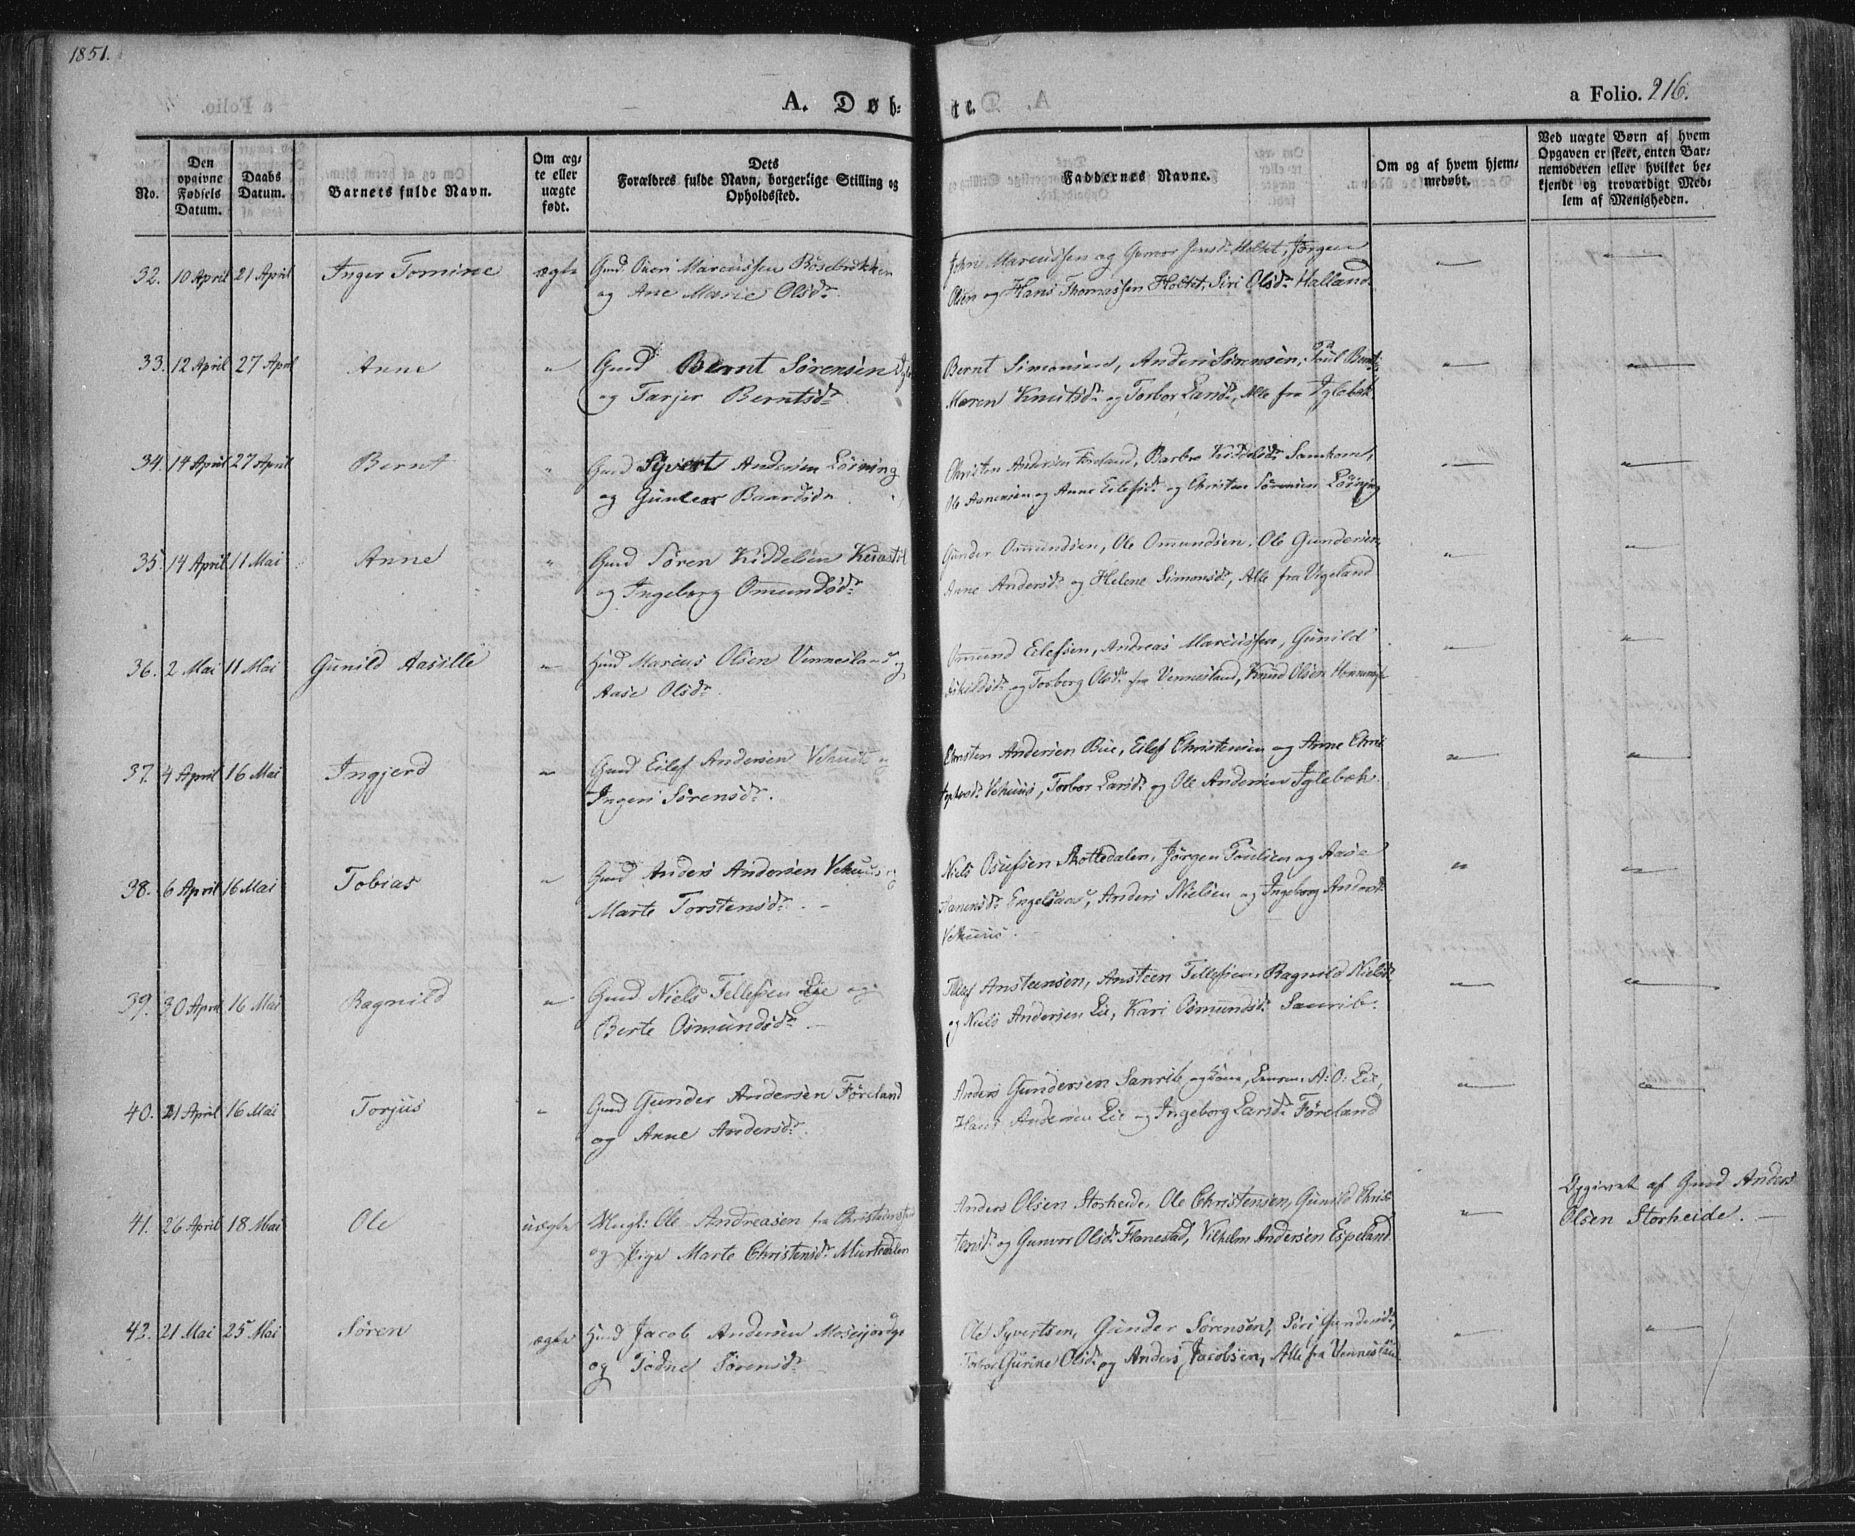 1851.
A. Døb-
te.
a Folio. 216.
No.
Den opgivne Fødsels Datum.
Daabs Datum.
Barnets fulde Navn.
Om ægte eller uægte født.
Dets Forældres fulde Navn, borgerlige Stilling og Opholdssted.
Faddernes Navne.
Om og af hvem hjemmedøbt.
Ved uægte Børn af hvem Opgaven er skeet, enten Barnemoderen eller hvilket bekjendt og troværdigt Medlem af Menigheden.
32. 10 April 21 April Inger Tomine ægte Gmd Marcussen
og Ane Marie Olsdr.
Marcussen og Gunvor Jensdr Holtet, Jørgen
Olsen og Hans Thomassen Holtet, Siri Olsdr Halland
33. 12 April 27 April Anne " Gmd Bernt Sørensen
og Tarjer Berntsdr.
Bernt Simonsen, Anders Sørensen, Poul Bernts.
Maren Knutsdr og Torbor Larsdr, Alle fra Iglebæk
34. 14 April 27 April Bernt " Gmd Syvert Andersen Løining
og Gunleor Baardsdr.
Christen Andersen Føreland, Barbro Samkom,
Ole Aanensen og Anne Eilefsdr og Christen Sørensen Løining
35. 14 April 11 Mai Anne " Gmd Søren Kiddelsen
og Ingeborg Omundsdr.
Gunder Omundsen, Ole Omundsen, Ole Gundersen,
Anne Andersdr og Helene Simonsdr, Alle fra Vigeland
36. 2 Mai 11 Mai Gunild Aasille " Hmd Marcus Olsen Vennesland og
Aase Olsdr.
Omund Eilefsen, Andreas Marcussen, Gunild
og Torborg Olsdr fra Vennesland, Knud Olsen
37. 4 April 16 Mai Ingjerd " Gmd Eilef Andersen Vehuus og
Ingeri Sørensdr.
Christen Andersen Bue, Eilef Christensen og Anne Chri-
stophersdr Vehuus, Torbor Larsdr og Ole Andersen Iglebæk
38. 6 April 16 Mai Tobias " Gmd Anders Andersen Vehuus og
Marte Torstensdr.
Niels Osufsen Skottedalen, Jørgen Poulsen og Aase
Hanensdr Engelsaas, Anders Nielsen og Ingeborg Andersdr
Vehuus.
39. 30 April 16 Mai Ragnild " Gmd Niels Tellefsen Lie og
Berte Osmundsdr.
Tellef Ansteensen, Ansteen Tellefsen, Ragnild Nielsdr
og Niels Andersen Lie, Kari Osmundsdr Sanrib.
40. 21 April 16 Mai Torjus " Gmd Gunder Andersen Føreland
og Anne Andersdr.
Anders Gundersen Sanrib og Kone, A: O: Lie,
Hans Andersen Lie og Ingeborg Larsdr Føreland
41. 26 April 18 Mai Ole uægte Ungk: Ole Andreasen fra Christiansand
og Pige Marte Christensdr
Anders Olsen Storheide, Ole Christensen, Gunild Chris-
tensdr og Gunvor Olsdr Flanestad, Vilhelm Andersen Espeland
Opgivet af Gmd Anders
Olsen Storheide.
42. 21 Mai 25 Mai Søren ægte Hmd Jacob Andersen Moseijord
og Todne Sørensdr
Ole Syvertsen, Gunder Sørensen, Siri Gundersdr,
Torbor Gurine Olsdr og Anders Jacobsen, Alle fra Vennesland